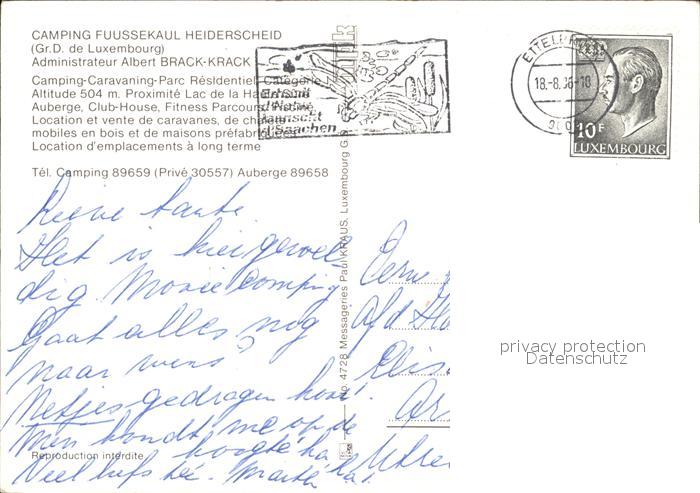 CAMPING FUUSSEKAUL HEIDERSCHEID
(Gr.D. de Luxembourg)
Administrateur Albert BRACK-KRACK
Camping-Caravaning-Parc Résidentiel, Catégorie
Altitude 504 m. Proximité Lac de la
Auberge, Club-House, Fitness Parcours,
Location et vente de caravanes, de
mobiles en bois et de maisons
Location d'emplacements à long terme
Tél. Camping 89659 (Privé 30557) Auberge 89658
Lieve tante
Het is hier gewel
dig Mooie Camping
Gaat alles nog
naar wens?
Netjes gedragen hoor!
Men houdt me op de
hoogte ha ha!
Veel liefs
Reproduction interdite
No 4728 Messageries Paul KRAUS, Luxembourg G.
d'Natur
Mannscht
d'Saachen
ETTELBR
18.-8.86-18
10F
LUXEMBOURG
Afd
Elis
Utre
privacy protection
Datenschutz